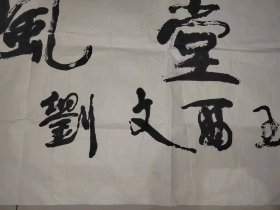 風堂
劉文西